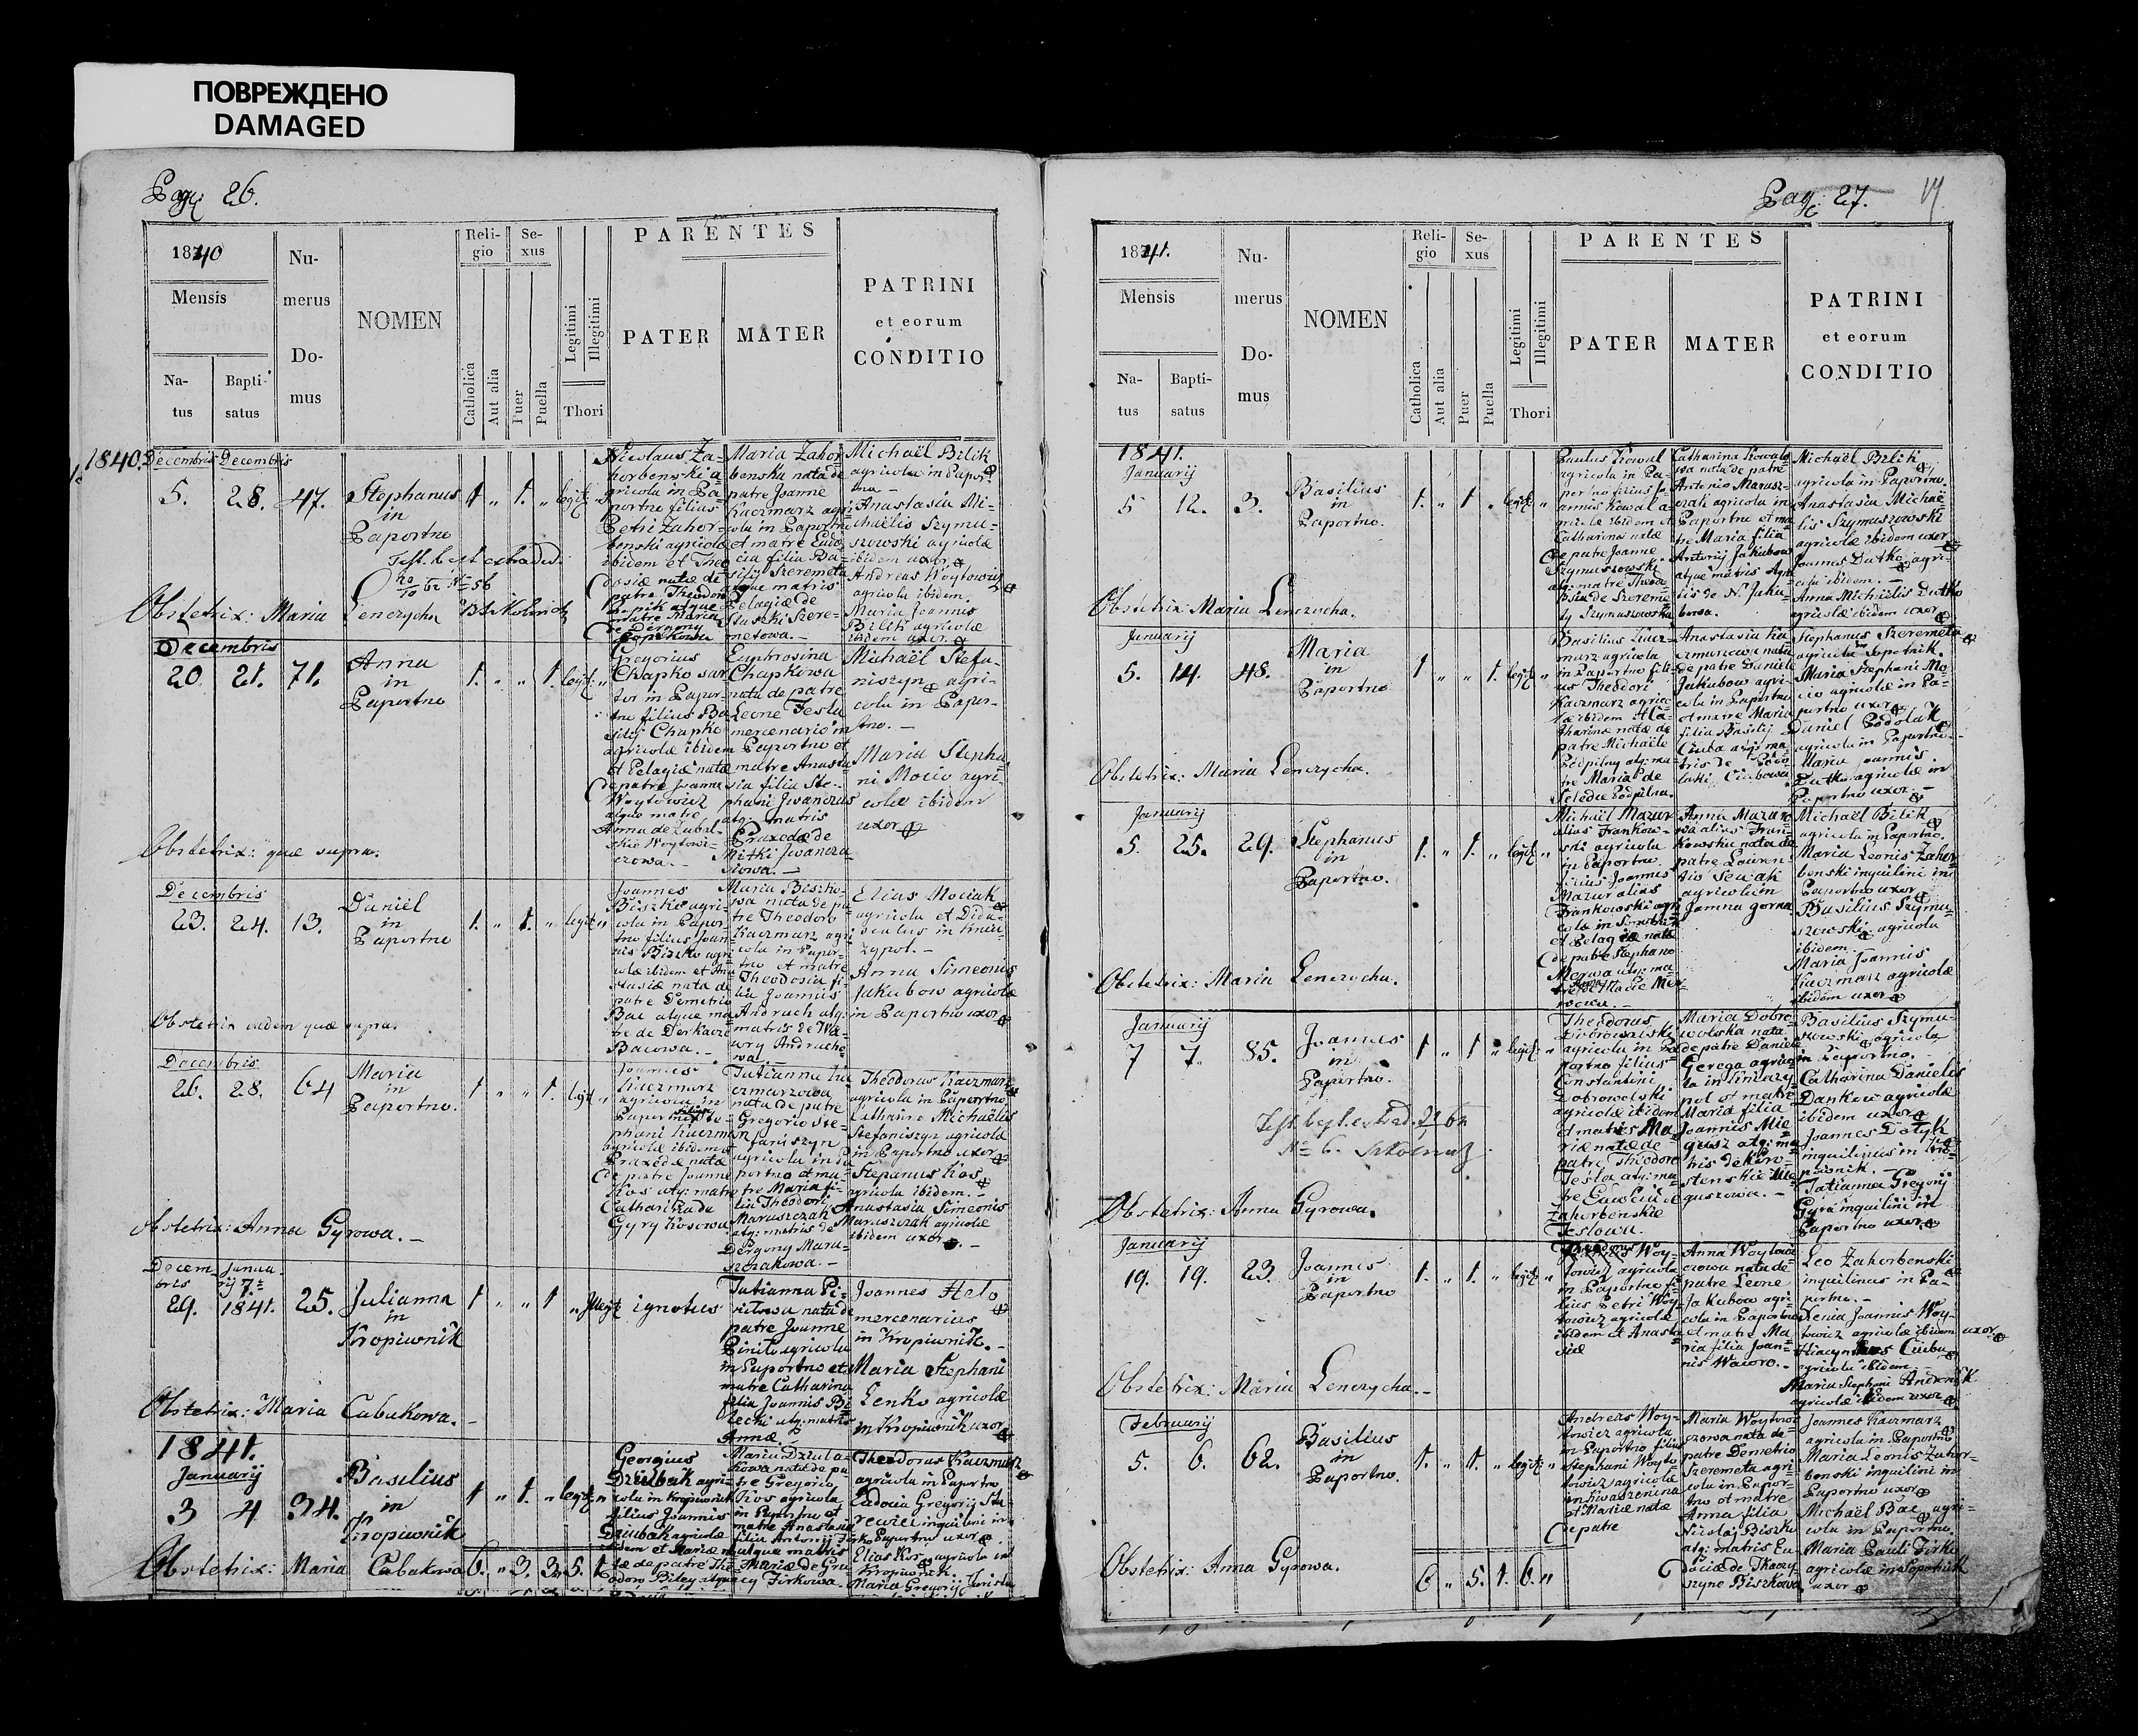 ПОВРЕЖДЕНО
DAMAGED
Pag: 26.
1840
Mensis
Na-
tus
Bapti-
satus
Nu-
merus
Do-
mus
NOMEN
Reli-
gio
Catholica
Aut alia
Se-
xus
Puer
Puella
Legitimi
Illegitimi
Thori
PARENTES
PATER
MATER
PATRINI
et eorum
CONDITIO
1840. Decembris Decembris
5. 28. 47. Stephanus
in
Paportno
1. " 1. " legit: "
Nicolaus Za-
horbenski a-
gricola in Pa-
portno filius
Petri Zahor-
benski agricolæ
ibidem et Theo
dosiæ natæ de
patre Theodoro
Maria Zahor
benska nata de
patre Joanne
Kaczmarz agri
cola in Paportno
et matre Eudo
cia filia Ba-
silij Szeremeta
atque matris
Pelagiæ de
metowa. -
Michaël Bilik
agricola in Papor
tno -
Anastasia Mi-
chaëlis Szymu-
szowski agricolæ
ibidem uxor
Andreas Woytowicz
agricola ibidem.
Maria Joannis
Bilik agricolæ
ibidem uxor.
Obstetrix: Maria Lenczycha
Decembris
20. 21. 71. Anna
in
Paportno
1. " " 1. legit: "
Gregorius
Chapko sar
tor in Papor-
tno filius Ba
silij Chapko
agricolæ ibidem
et Pelagiæ natæ
de patre Joanne
Woytowicz
atque matre
Anna de Zubal
skie Woytowi-
czowa. -
Euphrosina
Chapkowa
nata de patre
Leone Jesla
mercenario in
Paportno et
matre Anasta
sia filia Ste-
phani Iwanczus
atq: matris
Praxedæ de
Mitki Iwancza
siowa. -
Michaël Stefa-
niszyn agri-
cola in Papor-
tno. -
Maria Stepha
ni Mocio agri-
colæ ibidem
uxor
Obstetrix: quæ supra.
Decembris
23. 24. 13. Daniel
in
Paportno
1. " 1. " legit: "
Joannes
Biszko agri-
cola in Papor-
tno filius Joan-
nis Biszko agri
colæ ibidem et Ana
stasiæ nata de
patre Demetrio
Bac atque ma
tre de Derkacze
Bacowa. -
Maria Biszko-
wa nata de pa-
tre Theodoro
Kaczmarz agri
cola in Papor-
tno et matre
Theodosia fi-
lia Joannis
Andruch atq:
matris de Wa-
wry Andrucho
wa. -
Elias Mociak
agricola et Dida-
sculus in Knia-
zypol. -
Anna Simeonis
Jakubow agricolæ
in Paportno uxor
Obstetrix eadem quæ supra.
Decembris
26. 28. 64 Maria
in
Paportno.
1. " " 1. legit "
Joannes
Kaczmarz
agricola in
Paportno filius Ste-
phani Kaczmarz
agricolæ ibidem et
Praxedæ natæ
de patre Joanne
Kos atq: matre
Catharina de
Gyry Kosowa
Tatianna Ka
czmarzowa
nata de patre
Gregorio Ste-
faniszyn
agricola in Pa
portno et ma-
tre Maria fi-
lia Theodori
Maruszczak
atq: matris de
Dergony Maru-
szczakowa. -
Theodorus Kaczmarz
agricola in Paportno
Catharina Michaëlis
Stefaniszyn agricolæ
in Paportno uxor
Stephanus Kos
agricola ibidem. -
Anastasia Simeonis
Maruszczak agricolæ
ibidem uxor. -
Obstetrix: Anna Gyrowa. -
Decem
bris
Janua
rij 7.
29. 1841. 25. Julianna
in
Kropiwnik
1 " " 1 " illegit:
ignotus
Tatianna Pi-
nitowa nata de
patre Joanne
Pinito agricola
in Paportno et
matre Catharina
filia Joannis Bi
lecki atq: matris
Annæ.
Joannes Halo
mercenarius
in Kropiwnik. -
Maria Stephani
Lenko agricolæ
in Kropiwnik uxor
Obstetrix: Maria Cabakowa. -
1841.
Januarij
3 4 34. Basilius
in
Kropiwnik
1 " 1. " legit: "
Georgius
Dziubak agri-
cola in Kropiwnik
filius Joannis
Dziubak agricolæ
ibidem et Mariæ na
tæ de patre The
odoro Biley atque
Maria Dziuba
kowa nata de pa
tre Gregorio
Kos agricola
in Paportno et
matre Anastasia
filia Antonij Firko
atque matris
Mariæ de Gra
Firkowa. -
Theodorus Kaczmarz
agricola in Paportno
Eudocia Gregorij
inquilini in
Paportno uxor
Elias Kos agricola in
Kropiwnik.
Maria Gregorij
Obstetrix: Maria Cabakowa 6. " 3. 3. 5. 1.
Pag: 27.
1841.
Mensis
Na-
tus
Bapti-
satus
Nu-
merus
Do-
mus
NOMEN
Reli-
gio
Catholica
Aut alia
Se-
xus
Puer
Puella
Legitimi
Illegitimi
Thori
PARENTES
PATER
MATER
PATRINI
et eorum
CONDITIO
1841.
Januarij
5 12. 3. Basilius
in
Paportno.
1. " 1 " legit: "
Paulus Kowal
agricola in Pa-
portno filius Jo
annis Kowal a-
gricolæ ibidem et
Catharinæ natæ
de patre Joanne
Szymuszowski
atq: matre Theodo
sia de Szereme
ty Szymuszowska
Catharina Kowalo
wa nata de patre
Antonio Marusz-
czak agricola in
Paportno et ma
tre Maria filia
Antonij Jakubow
atque matris Agn
tis de N. Jaku-
bowa.
Michaël Bilik
agricola in Paportno.
Anastasia Michaë
lis Szymuszowski
agricolæ ibidem uxor
Joannes Dutko agri-
cola ibidem. -
Anna Michaëlis Dutko
agricolæ ibidem uxor
Obstetrix Maria Lenczycha.
Januarij
5. 14. 48. Maria
in
Paportno
1 " " 1. legit "
Basilius Kacz-
marz agricola
in Paportno fili-
us Theodori
Kaczmarz agrico
læ ibidem et Ca-
tharinæ natæ de
patre Michaële
Podpilny atq: ma
tre Maria de
Seledec Podpilna.
Anastasia Ka
czmarzowa nata
de patre Daniele
Jakubow agri-
cola in Paportno
et matre Maria
filia Basilij
Ciuba atq: ma-
tris de
Ciubowa
Stephanus Szeremeta
agricola in Sopotnik.
Maria Stephani Mo
cio agricolæ in Pa-
portno uxor
Daniel Podolak
agricola in Paportno. -
Maria Joannis
Dutko agricolæ in
Paportno uxor. -
Obstetrix: Maria Lenczycha.
Januarij
5. 25. 29. Stephanus
in
Paportno.
1. " 1. " legit: "
Michaël Mazur
alias Frankow-
ski agricola
in Paportno
filius Joannis
Mazur alias
Frankowski agri
colæ in
et Pelagiæ natæ
de patre Stephano
Merwa atq: ma-
wowa. -
Anna Mazuro
wa alias Fran-
kowska nata de
patre Lauren
tio Seciak
agricola in
Jamna gorna
Michaël Bilik
agricola in Paportno.
Maria Leonis Zahor-
benski inquilini in
Paportno uxor
Basilius Szymu-
szowski agricola
ibidem. -
Maria Joannis
Kaczmarz agricolæ
ibidem uxor
Obstetrix: Maria Lenczycha.
Januarij
7 7. 85. Joannes
in
Paportno.
1 " 1 " legit: "
Theodorus
Dobrowolski
agricola in Pa
portno filius
Constantini
Dobrowolski
agricolæ ibidem
et matris Ma
riæ natæ de
patre Theodoro
Jesla atq: ma
tre Eudocia de
Zahorbenskie
Jeslowa.
Maria Dobro
wolska nata
de patre Daniele
Gerega agrico
la in Kniazy
pol et matre
Maria filia
Joannis Mie
gusz atq: ma
tris de Koro-
stenskie Mie
guszowa. -
Basilius Szymu-
szowski agricola
in Paportno.
Catharina Danielis
Dankow agricolæ
ibidem uxor
Joannes Dotyk
inquilinus in Kro-
piwnik. -
Tatianna Gregorij
Gyra inquilini in
Paportno uxor
Obstetrix: Anna Gyrowa.
Januarij
19. 19. 23. Joannes
in
Paportno
1. " 1. " legit: "
Woy-
towicz agricola
in Paportno fi-
lius Petri Woy-
towicz agricolæ
ibidem et Anasta
siæ
Anna Woytowi
czowa nata de
patre Leone
Jakubow agri-
cola in Paportno
et matre Ma
ria filia Joan-
nis Waioro. -
Leo Zahorbenski
inquilinus in Pa-
portno. -
Xenia Joannis Woy-
towicz agricolæ ibidem uxor
Hiacynthus Ciuba
agricola ibidem. -
Maria Stephani
agricolæ ibidem uxor
Obstetrix: Maria Lenczycha. -
Februarij
5. 6. 62. Basilius
in
Paportno.
1. " 1. " legit: "
Andreas Woy-
towicz agricola
in Paportno filius
Stephani Woyto
wicz agricolæ
in Kwaszenina
et Mariæ natæ
de patre
Maria Woytowi
czowa nata de
patre Demetrio
Szeremeta agri-
cola in Papor-
tno et matre
Anna filia
Nicolaj Biszko
atq: matris Eu-
dociæ de Tkaczy-
szyne Biszkowa
Joannes Kaczmarz
agricola in Paportno
Maria Leonis Zahor-
benski inquilini in
Paportno uxor
Michaël Bac agri-
cola in Paportno.
Maria Pauli Firko
agricolæ in Sopotnik
uxor
Obstetrix: Anna Gyrowa. 6 " 5. 1. 6. "